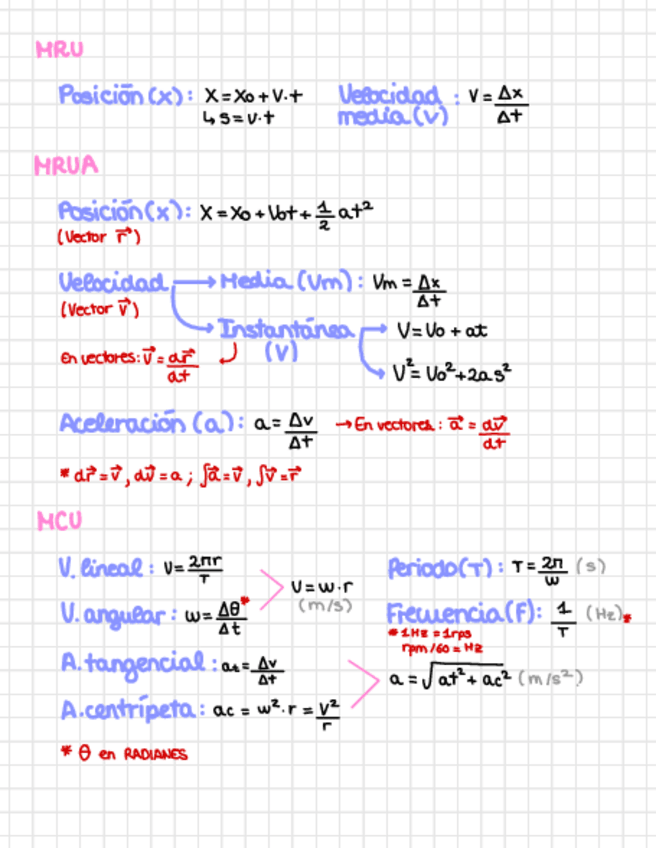 MRU
Posición (x): X = X₀ + V·t
↳ s = v·t
Velocidad media (v): V = Δx/Δt
MRUA
Posición (x): X = X₀ + V₀t + 1/2 at²
(Vector r⃗)
Velocidad → Media (Vm): Vm = Δx/Δt
(Vector v⃗)
→ Instantánea (V) → V = V₀ + at
→ V² = V₀² + 2as²
En vectores: v⃗ = dr⃗/dt
Aceleración (a): a = Δv/Δt → En vectores: a⃗ = dv⃗/dt
* dr⃗ = v⃗, dv⃗ = a; ∫a⃗ = v⃗, ∫v⃗ = r⃗
MCU
V. lineal: V = 2πr/T
V. angular: w = Δθ*/Δt
V = w·r
(m/s)
Periodo (T): T = 2π/w (s)
Frecuencia (F): 1/T (Hz)*
* 1Hz = 1rps
rpm/60 = Hz
A. tangencial: at = Δv/Δt
A. centrípeta: ac = w²·r = v²/r
a = √at² + ac² (m/s²)
* θ en RADIANES